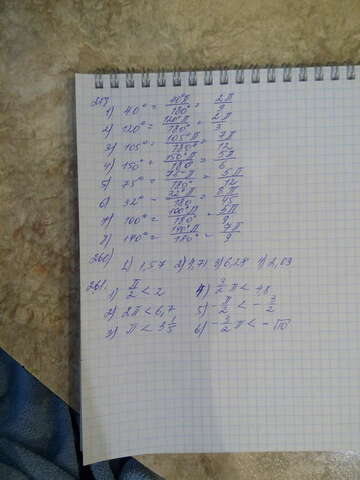 259
1) 40° = 40°π/180° = 2π/9
2) 120° = 120°π/180° = 2π/3
3) 105° = 105°π/180° = 7π/12
4) 150° = 150°π/180° = 5π/6
5) 75° = 75°π/180° = 5π/12
6) 32° = 32°π/180 = 8π/45
7) 100° = 100°π/180° = 5π/9
8) 140° = 140°π/180° = 7π/9
260)
1) 1,57 2) 4,71 3) 6,28 4) 2,09
261.
1) π/2 < 2 4) 3/2 π < 4,8
2) 2π < 6,7 5) -π/2 < -3/2
3) π < 3 1/5 6) -3/2 π < -√10